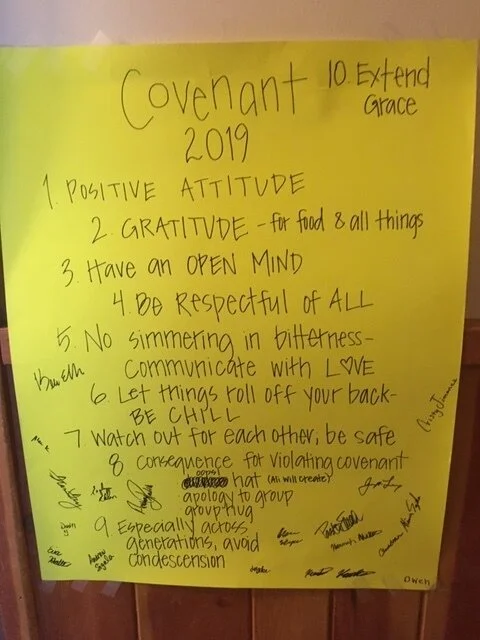 Covenant
2019
10. Extend
Grace
1. POSITIVE ATTITUDE
2. GRATITUDE - for food & all things
3. Have an OPEN MIND
4. Be Respectful of ALL
5. No simmering in bitterness-
communicate with L♡VE
6. Let things roll off your back-
BE CHILL
7. Watch out for each other, be safe
8 consequence for violating covenant
oops!
hat (Ali will create)
apology to group
group hug
9. Especially across
generations, avoid
condescension
Owen